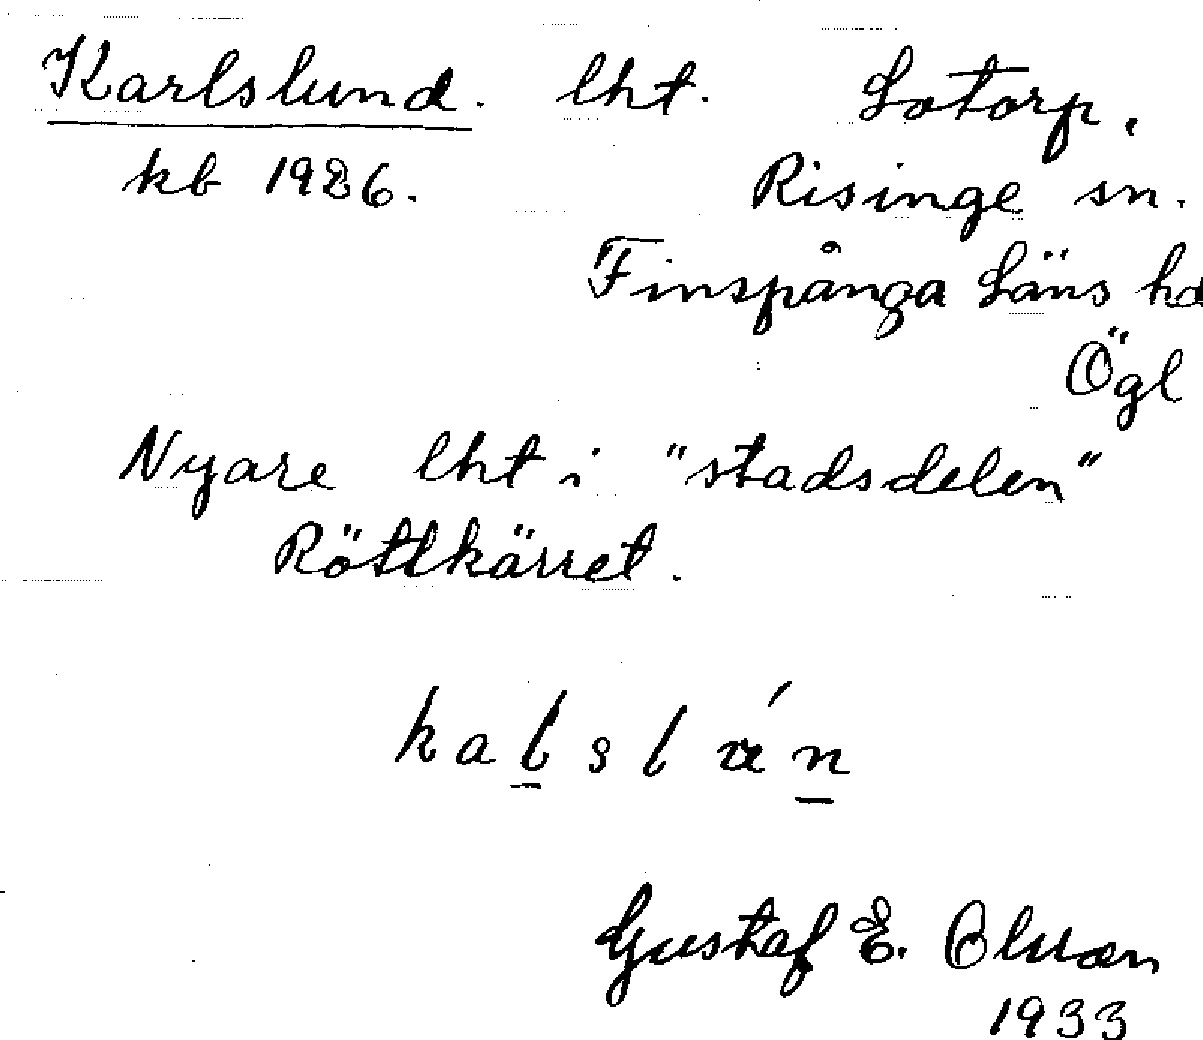 Karlslund. lht. Lotorp.
kb 1926. Risinge sn.
Finspånga Läns hd
Ögl
Nyare lht i "stadsdelen"
Röttkärret.
kalslán
Gustaf E. Olsson
1933